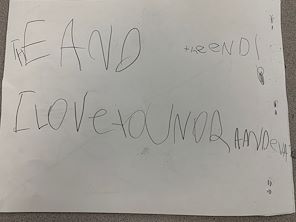 THE AND theeNDI
I LOVe tOUNDR AMDeVA